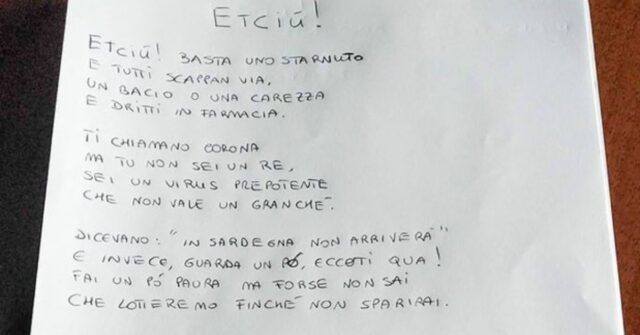 ETCIÚ!
ETCIÚ! BASTA UNO STARNUTO
E TUTTI SCAPPAN VIA,
UN BACIO O UNA CAREZZA
E DRITTI IN FARMACIA.
TI CHIAMANO CORONA
MA TU NON SEI UN RE,
SEI UN VIRUS PREPOTENTE
CHE NON VALE UN GRANCHÉ.
DICEVANO: "IN SARDEGNA NON ARRIVERÀ"
E INVECE, GUARDA UN PÓ, ECCOTI QUA!
FAI UN PÓ PAURA MA FORSE NON SAI
CHE LOTTEREMO FINCHÉ NON SPARIRAI.